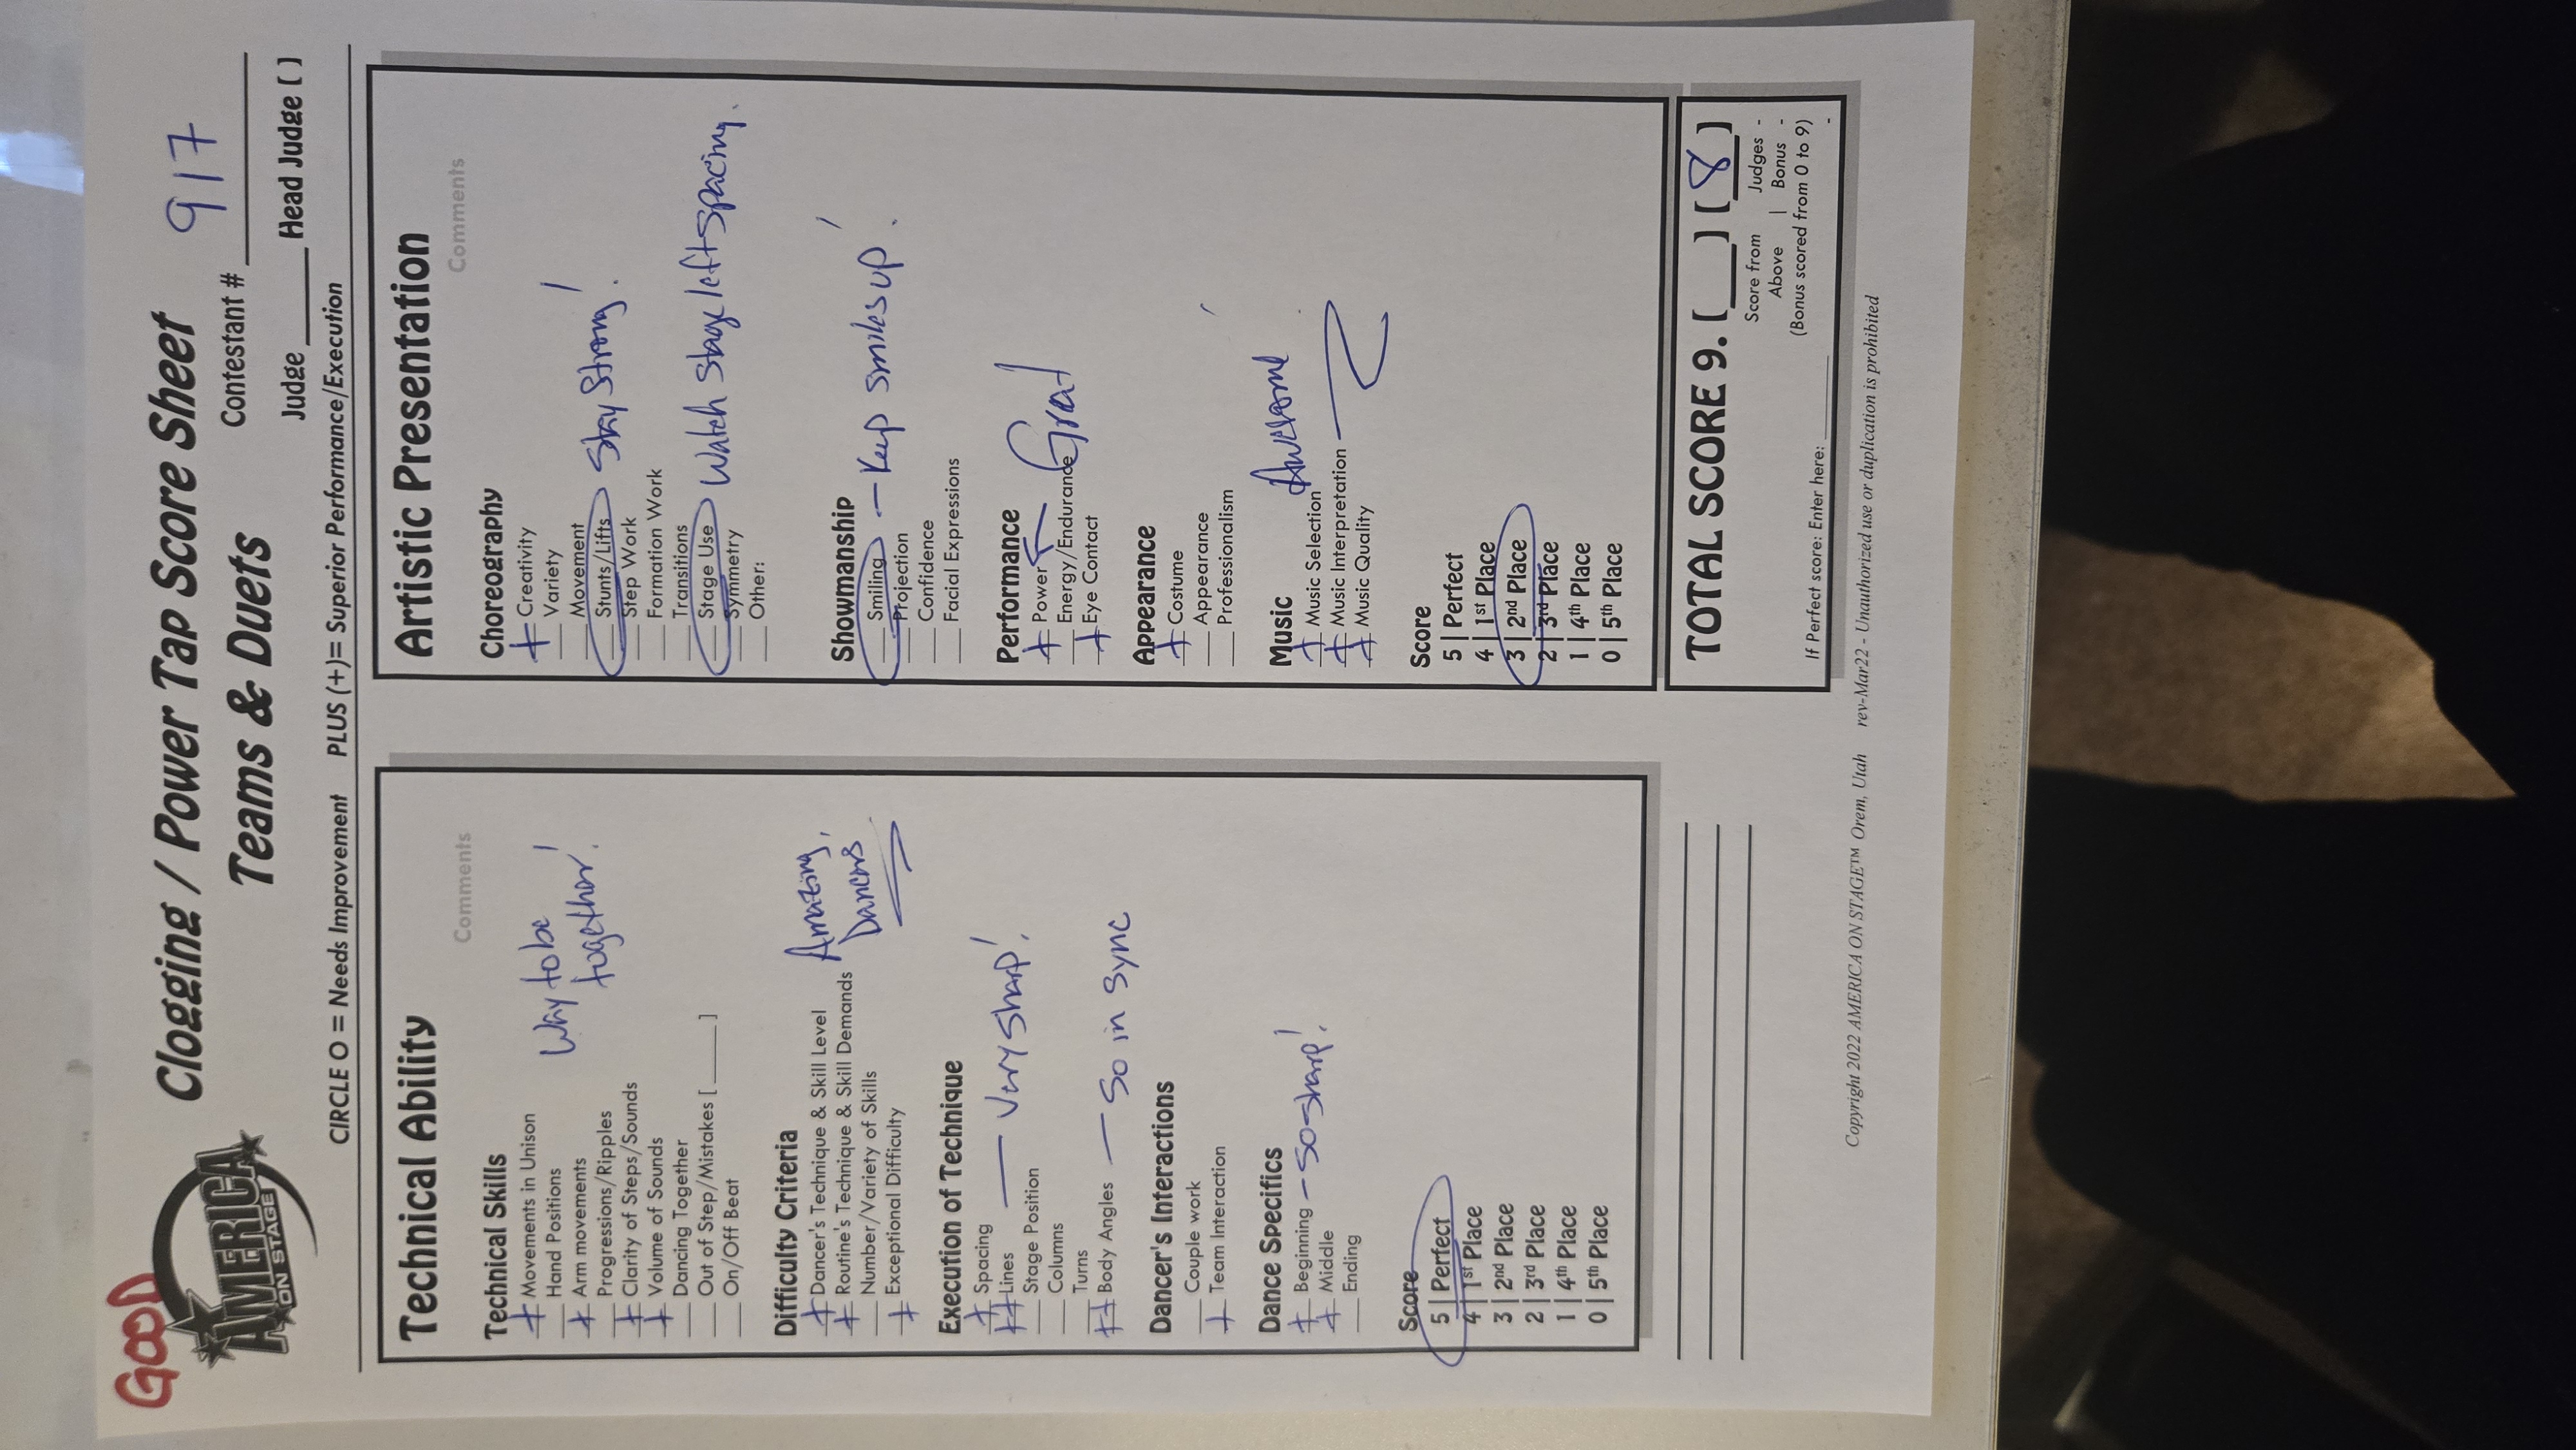 GOOD
AMERICA
ON STAGE
Clogging / Power Tap Score Sheet
Teams & Duets
Contestant # 917
Judge ____ Head Judge [ ]
CIRCLE O = Needs Improvement PLUS (+)= Superior Performance/Execution
Technical Ability
Comments
Technical Skills
+ Movements in Unison
Way to be together!
__ Hand Positions
+ Arm movements
__ Progressions/Ripples
+ Clarity of Steps/Sounds
+ Volume of Sounds
__ Dancing Together
__ Out of Step/Mistakes [____]
__ On/Off Beat
Difficulty Criteria
+ Dancer's Technique & Skill Level Amazing
+ Routine's Technique & Skill Demands Dancers
__ Number/Variety of Skills
+ Exceptional Difficulty
Execution of Technique
+ Spacing
++ Lines — Very Sharp!
__ Stage Position
__ Columns
__ Turns
++ Body Angles — So in Sync
Dancer's Interactions
__ Couple work
+ Team Interaction
Dance Specifics
+ Beginning - So-sharp!
+ Middle
__ Ending
Score
5 | Perfect
4 | 1st Place
3 | 2nd Place
2 | 3rd Place
1 | 4th Place
0 | 5th Place
Artistic Presentation
Comments
Choreography
+ Creativity
__ Variety
__ Movement
__ Stunts/Lifts Stay Strong!
__ Step Work
__ Formation Work
__ Transitions
__ Stage Use Watch Stage left spacing.
__ Symmetry
__ Other:
Showmanship
__ Smiling — Keep smiles up!
__ Projection
__ Confidence
__ Facial Expressions
Performance
+ Power
__ Energy/Endurance Great
+ Eye Contact
Appearance
+ Costume
__ Appearance
__ Professionalism
Music
+ Music Selection Awesome
+ Music Interpretation
+ Music Quality
Score
5 | Perfect
4 | 1st Place
3 | 2nd Place
2 | 3rd Place
1 | 4th Place
0 | 5th Place
TOTAL SCORE 9. [__] [8]
Score from Above | Judges - Bonus -
(Bonus scored from 0 to 9)
If Perfect score: Enter here: ________ -
Copyright 2022 AMERICA ON STAGE™ Orem, Utah rev-Mar22 - Unauthorized use or duplication is prohibited